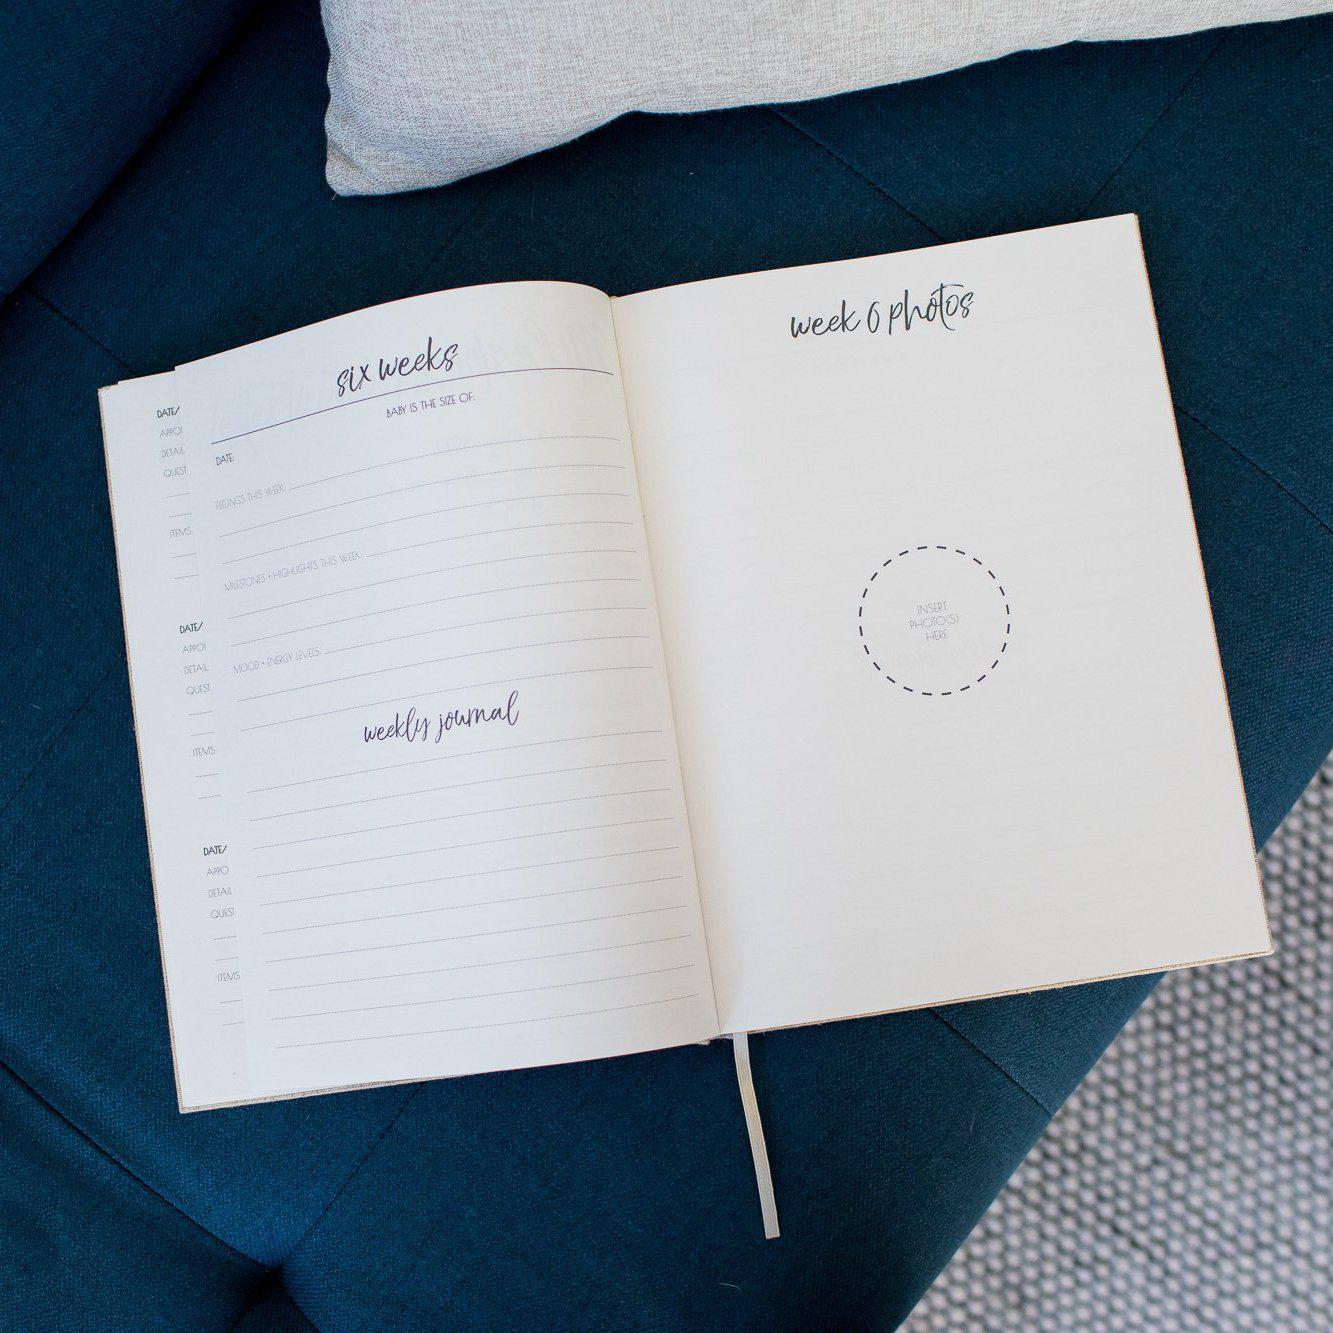 six weeks
BABY IS THE SIZE OF:
DATE:
FEELINGS THIS WEEK:
MILESTONES + HIGHLIGHTS THIS WEEK:
MOOD + ENERGY LEVELS:
weekly journal
DATE/
APPOI
DETAIL
QUEST
ITEMS
DATE/
APPOI
DETAIL
QUES
ITEMS
DATE/
APPO
DETAIL
QUEST
ITEMS
week 6 photos
INSERT
PHOTO(S)
HERE